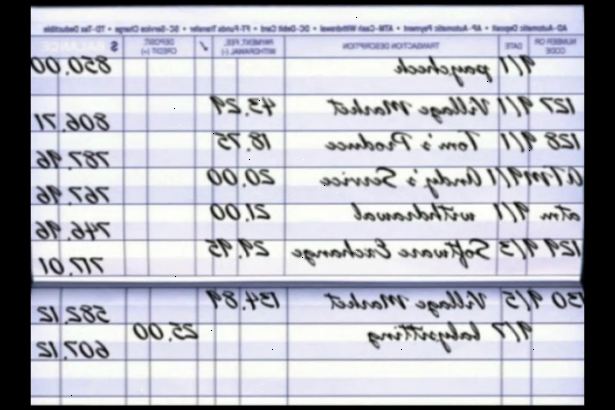 AD-Automatic Deposit • AP-Automatic Payment • ATM-Cash Withdrawal • DC-Debit Card • FT-Funds Transfer • SC-Service Charge • TD-Tax Deductible
NUMBER OR CODE DATE TRANSACTION DESCRIPTION PAYMENT, FEE, WITHDRAWAL (-) ✓ DEPOSIT, CREDIT (+) $ BALANCE
9/1 paycheck 850.00
127 9/1 Village Market 43.29 806.71
128 9/1 Tom's Produce 18.75 787.96
ATM 9/1 Andy's Service 20.00 767.96
atm 9/1 withdrawal 21.00 746.96
129 9/3 Software Exchange 29.95 717.01
130 9/5 Village Market 134.89 582.12
9/7 babysitting 25.00 607.12